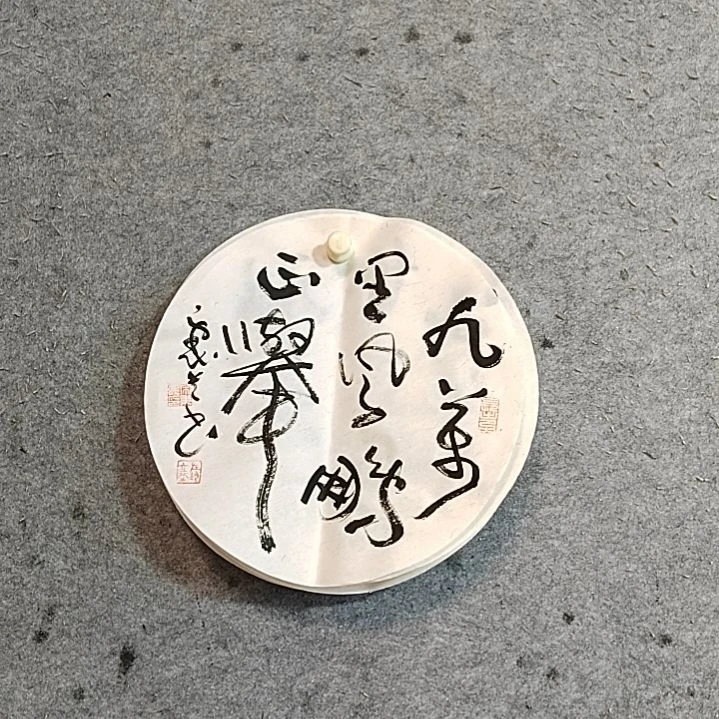 九萬
里風鵬
正舉